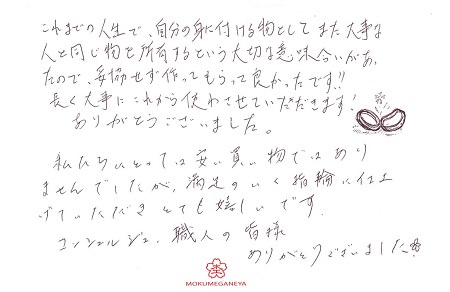 これまでの人生で、自分の身に付ける物として また大事な
人と同じ物を所有するという大切な意味合いがあっ
たので、妥協せず作ってもらって良かったです!!
長く大事にこれから使わさせていただきます!
ありがとうございました。
私たちにとっては安い買い物ではあり
ませんでしたが、満足のいく指輪に仕上
げていただき とても嬉しいです。
コンシェルジュ、職人の皆様
ありがとうございました
MOKUMEGANEYA